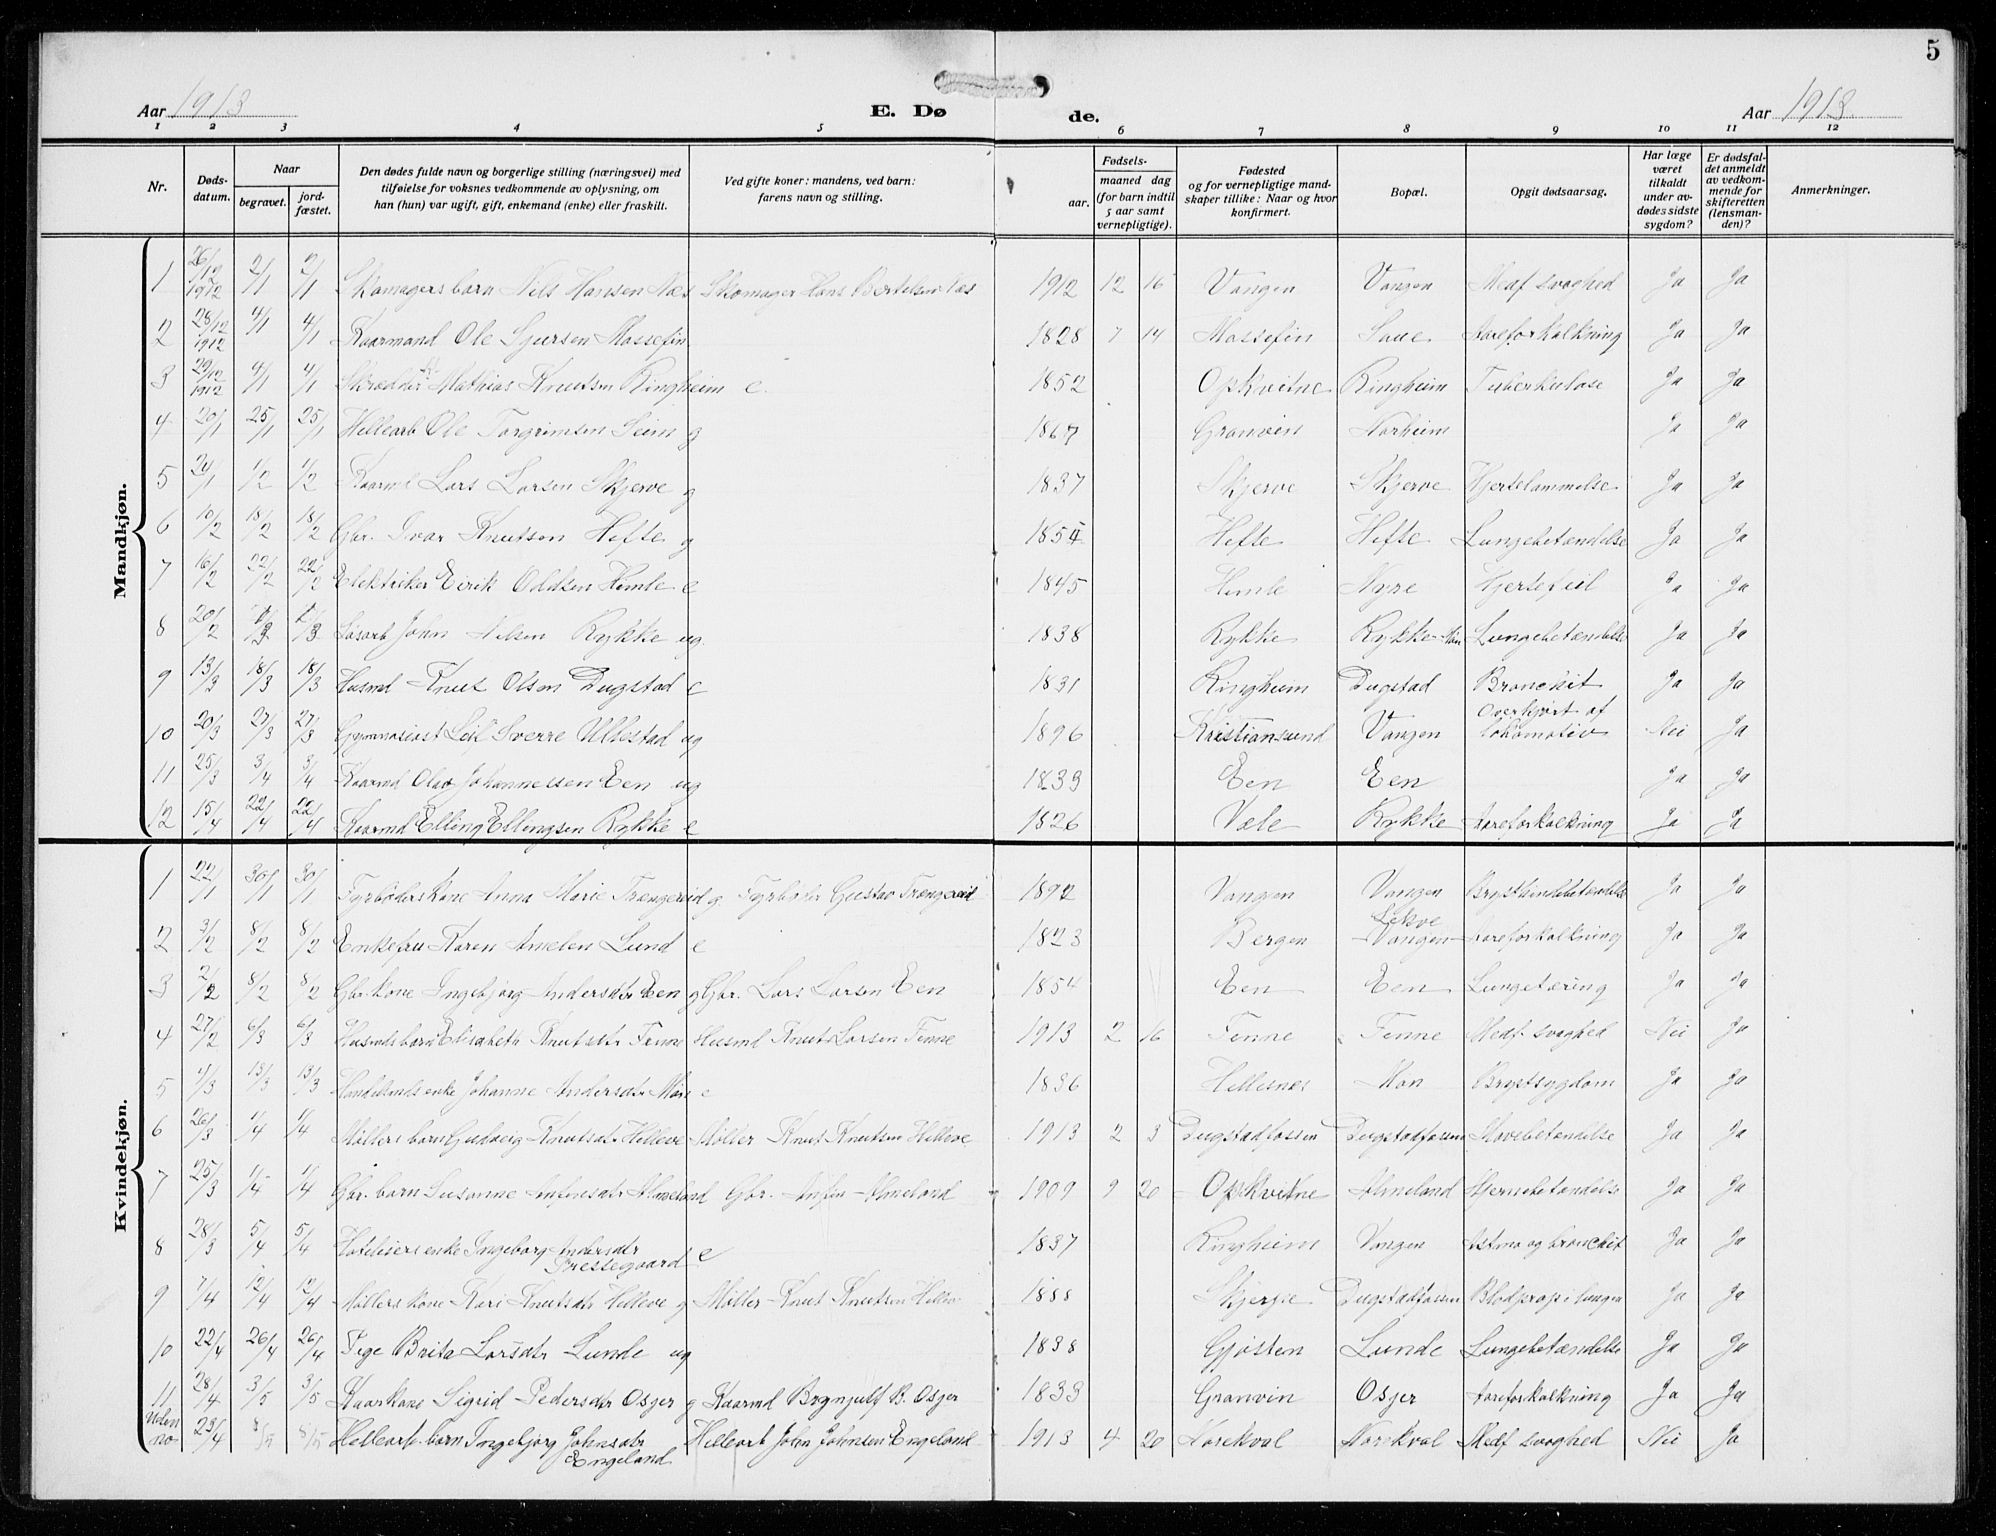 5
Aar 1913 E. Døde. Aar 1913
1 2 3 4 5 6 7 8 9 10 11 12
Nr.
Døds-datum.
Naar
begravet.
jord-fæstet.
Den dødes fulde navn og borgerlige stilling (næringsvei) med tilføielse for voksnes vedkommende av oplysning, om han (hun) var ugift, gift, enkemand (enke) eller fraskilt.
Ved gifte koner: mandens, ved barn: farens navn og stilling.
Fødsels-
aar.
maaned dag
(for barn indtil 5 aar samt vernepligtige).
Fødested og for vernepligtige mandskaper tillike: Naar og hvor konfirmert.
Bopæl.
Opgit dødsaarsag.
Har læge været tilkaldt under avdødes sidste sygdom?
Er dødsfaldet anmeldt av vedkommende for skifteretten (lensmanden)?
Anmerkninger.
Mandkjøn.
1 26/12 1912 2/1 2/1 Skomagersbarn Nils Hansen Næs Skomager Hans Bertelsen Næs 1912 12 16 Vangen Vangen Medf svaghed Ja Ja
2 28/12 1912 4/1 4/1 Kaarmand Ole Sjursen Mossefin 1828 7 14 Mossefin Saue Aareforkalkning Ja Ja
3 29/12 1912 4/1 4/1 Skrædder Mathias Knutsen Ringheim e. 1852 Opkvitne Ringheim Tuberkulose Ja Ja
4 20/1 25/1 25/1 Hellearb Ole Torgrimsen Seim g 1867 Granvin Norheim Ja Ja
5 24/1 1/2 1/2 Kaarmd Lars Larsen Skjerve g 1837 Skjerve Skjerve Hjertelammelse Ja Ja
6 10/2 18/2 18/2 Gbr. Ivar Knutsen Hefte g 1854 Hefte Hefte Lungebetændelse Ja Ja
7 16/2 22/2 22/2 Elektriker Eirik Oddsen Himle e 1845 Himle Nyre Hjertefeil Ja Ja
8 20/2 1/3 1/3 Løsarb John Nilsen Rykke ug. 1838 Rykke Rykke Lungebetændelse Ja Ja
9 13/3 18/3 18/3 Husmd Knut Olsen Dugstad e 1831 Ringheim Dugstad Bronchit Ja Ja
10 20/3 27/3 27/3 Gymnasiast Leif Sverre Ullestad ug 1896 Kristiansund Vangen Overkjørt af lokomotiv Nei Ja
11 25/3 3/4 3/4 Kaarmd Olav Johannessen Een ug 1839 Een Een Ja Ja
12 15/4 22/4 22/4 Kaarmd Elling Ellingsen Rykke e 1826 Væle Rykke Aareforkalkning Ja Ja
Kvindekjøn.
1 22/1 30/1 30/1 Fyrbøders kone Anna Marie Trengereid g. Fyrbøder Gustav Trengereid 1892 Vangen Vangen Brysthindebetændelse Ja Ja
2 3/2 8/2 8/2 Enkefru Karen Amelen Lund e 1823 Bergen Lekve Vangen Aareforkalkning Ja Ja
3 2/2 8/2 8/2 Gbr. kone Ingebjørg Andersdtr Een g Gbr. Lars Larsen Een 1854 Een Een Lungetæring Ja Ja
4 27/2 6/3 6/3 Husmds barn Elisabeth Knutsdtr Fenne Husmd Knut Larsen Fenne 1913 2 16 Fenne Fenne Medf. svaghed Nei Ja
5 4/3 13/3 13/3 Handelsmds enke Johanne Andersdtr Møn e 1836 Hellesnes Møn Brystsygdom Ja Ja
6 26/3 1/4 1/4 Møllers barn Gudveig Knutsdtr Helleve Møller Knut Knutsen Helleve 1913 2 3 Dugstadfossen Dugstadfossen Mavebetændelse Ja Ja
7 25/3 1/4 1/4 Gbr. barn Susanne Anfinsdtr Almeland Gbr. Anfin Almeland 1909 9 20 Opkvitne Almeland Hjernebetændelse Ja Ja
8 28/3 5/4 5/4 Hoteliers enke Ingeborg Andersdtr Prestegaard e 1837 Ringheim Vangen Astma og bronchit Ja Ja
9 7/4 12/4 12/4 Møllers kone Kari Knutsdtr Helleve g Møller Knut Knutsen Helleve 1888 Skjerpe Dugstadfossen Blodprop i lungen Ja Ja
10 22/4 26/4 26/4 Pige Brita Larsdtr Lunde ug 1838 Gjøsten Lunde Lungebetændelse Ja Ja
11 28/4 3/5 3/5 Kaarkone Sigrid Pedersdtr Osjer g Kaarmd Brynjulf B. Osjer 1833 Granvin Osjer Aareforkalkning Ja Ja
Uden no 23/4 8/5 8/5 Hellearb. barn Ingebjørg Johnsdtr Engeland Hellearb John Johnsen Engeland 1913 4 20 Norekval Norekval Medf svaghed Nei Ja